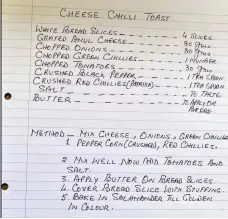 CHEESE CHILLI TOAST
WHITE BREAD SLICES --- 4 SLICES
GRATED AMUL CHEESE --- 80 GMS
CHOPPED ONIONS --- 30 GMS
CHOPPED GREEN CHILLIES --- 1 NUMBER
CHOPPED TOMATOES --- 30 GMS
CRUSHED BLACK PEPPER --- 1 TEA SPOON
CRUSHED RED CHILLIES (PAPRIKA) --- 1 TEA SPOON
SALT --- TO TASTE
BUTTER --- TO APPLY ON BREAD
METHOD - MIX CHEESE, ONIONS, GREEN CHILLIES
1. PEPPER CORN (CRUSHED), RED CHILLIES.
2. MIX WELL NOW ADD TOMATOES AND
SALT.
3. APPLY BUTTER ON BREAD SLICES.
4. COVER BREAD SLICE WITH STUFFING.
5. BAKE IN SALAMANDER TILL GOLDEN
IN COLOUR.